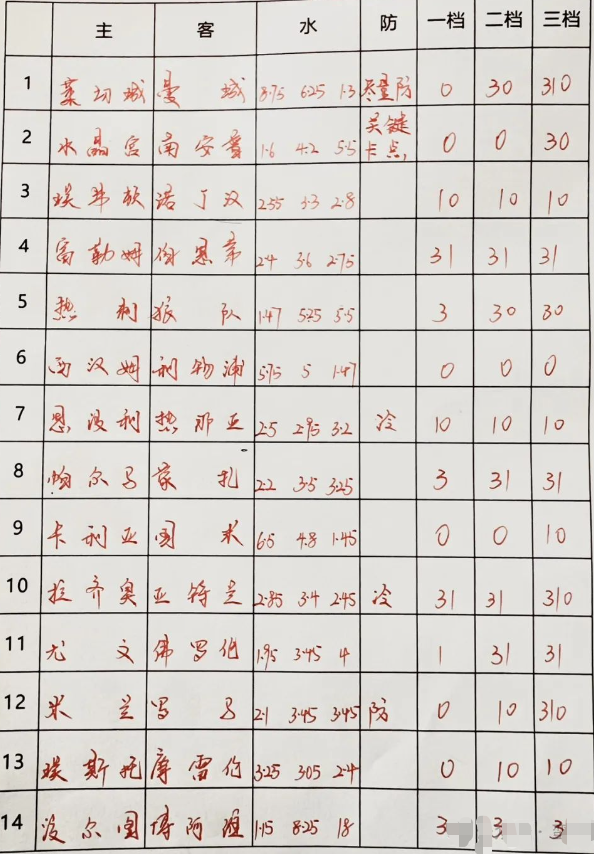 主 客 水 防 一档 二档 三档
1 莱切城 曼城 8.75 6.25 1.3 尽量防 0 30 310
2 水晶宫 南安普 1.6 4.2 5.5 关键卡点 0 0 30
3 埃弗顿 诺丁汉 2.55 3.3 2.8 10 10 10
4 富勒姆 伯恩茅 2.4 3.6 2.75 31 31 31
5 热刺 狼队 1.47 5.25 5.5 3 30 30
6 西汉姆 利物浦 5.75 5 1.47 0 0 0
7 恩波利 热那亚 2.5 2.95 3.2 冷 10 10 10
8 帕尔马 蒙扎 2.2 3.5 3.25 3 31 31
9 卡利亚 国米 6.5 4.8 1.45 0 0 10
10 拉齐奥 亚特兰 2.85 3.4 2.45 冷 31 31 310
11 尤文 佛罗伦 1.95 3.45 4 1 31 31
12 米兰 罗马 2.1 3.45 3.45 防 0 10 310
13 埃斯托 摩雷伦 3.25 3.05 2.4 0 10 10
14 波尔图 博阿维 1.15 8.25 18 3 3 3